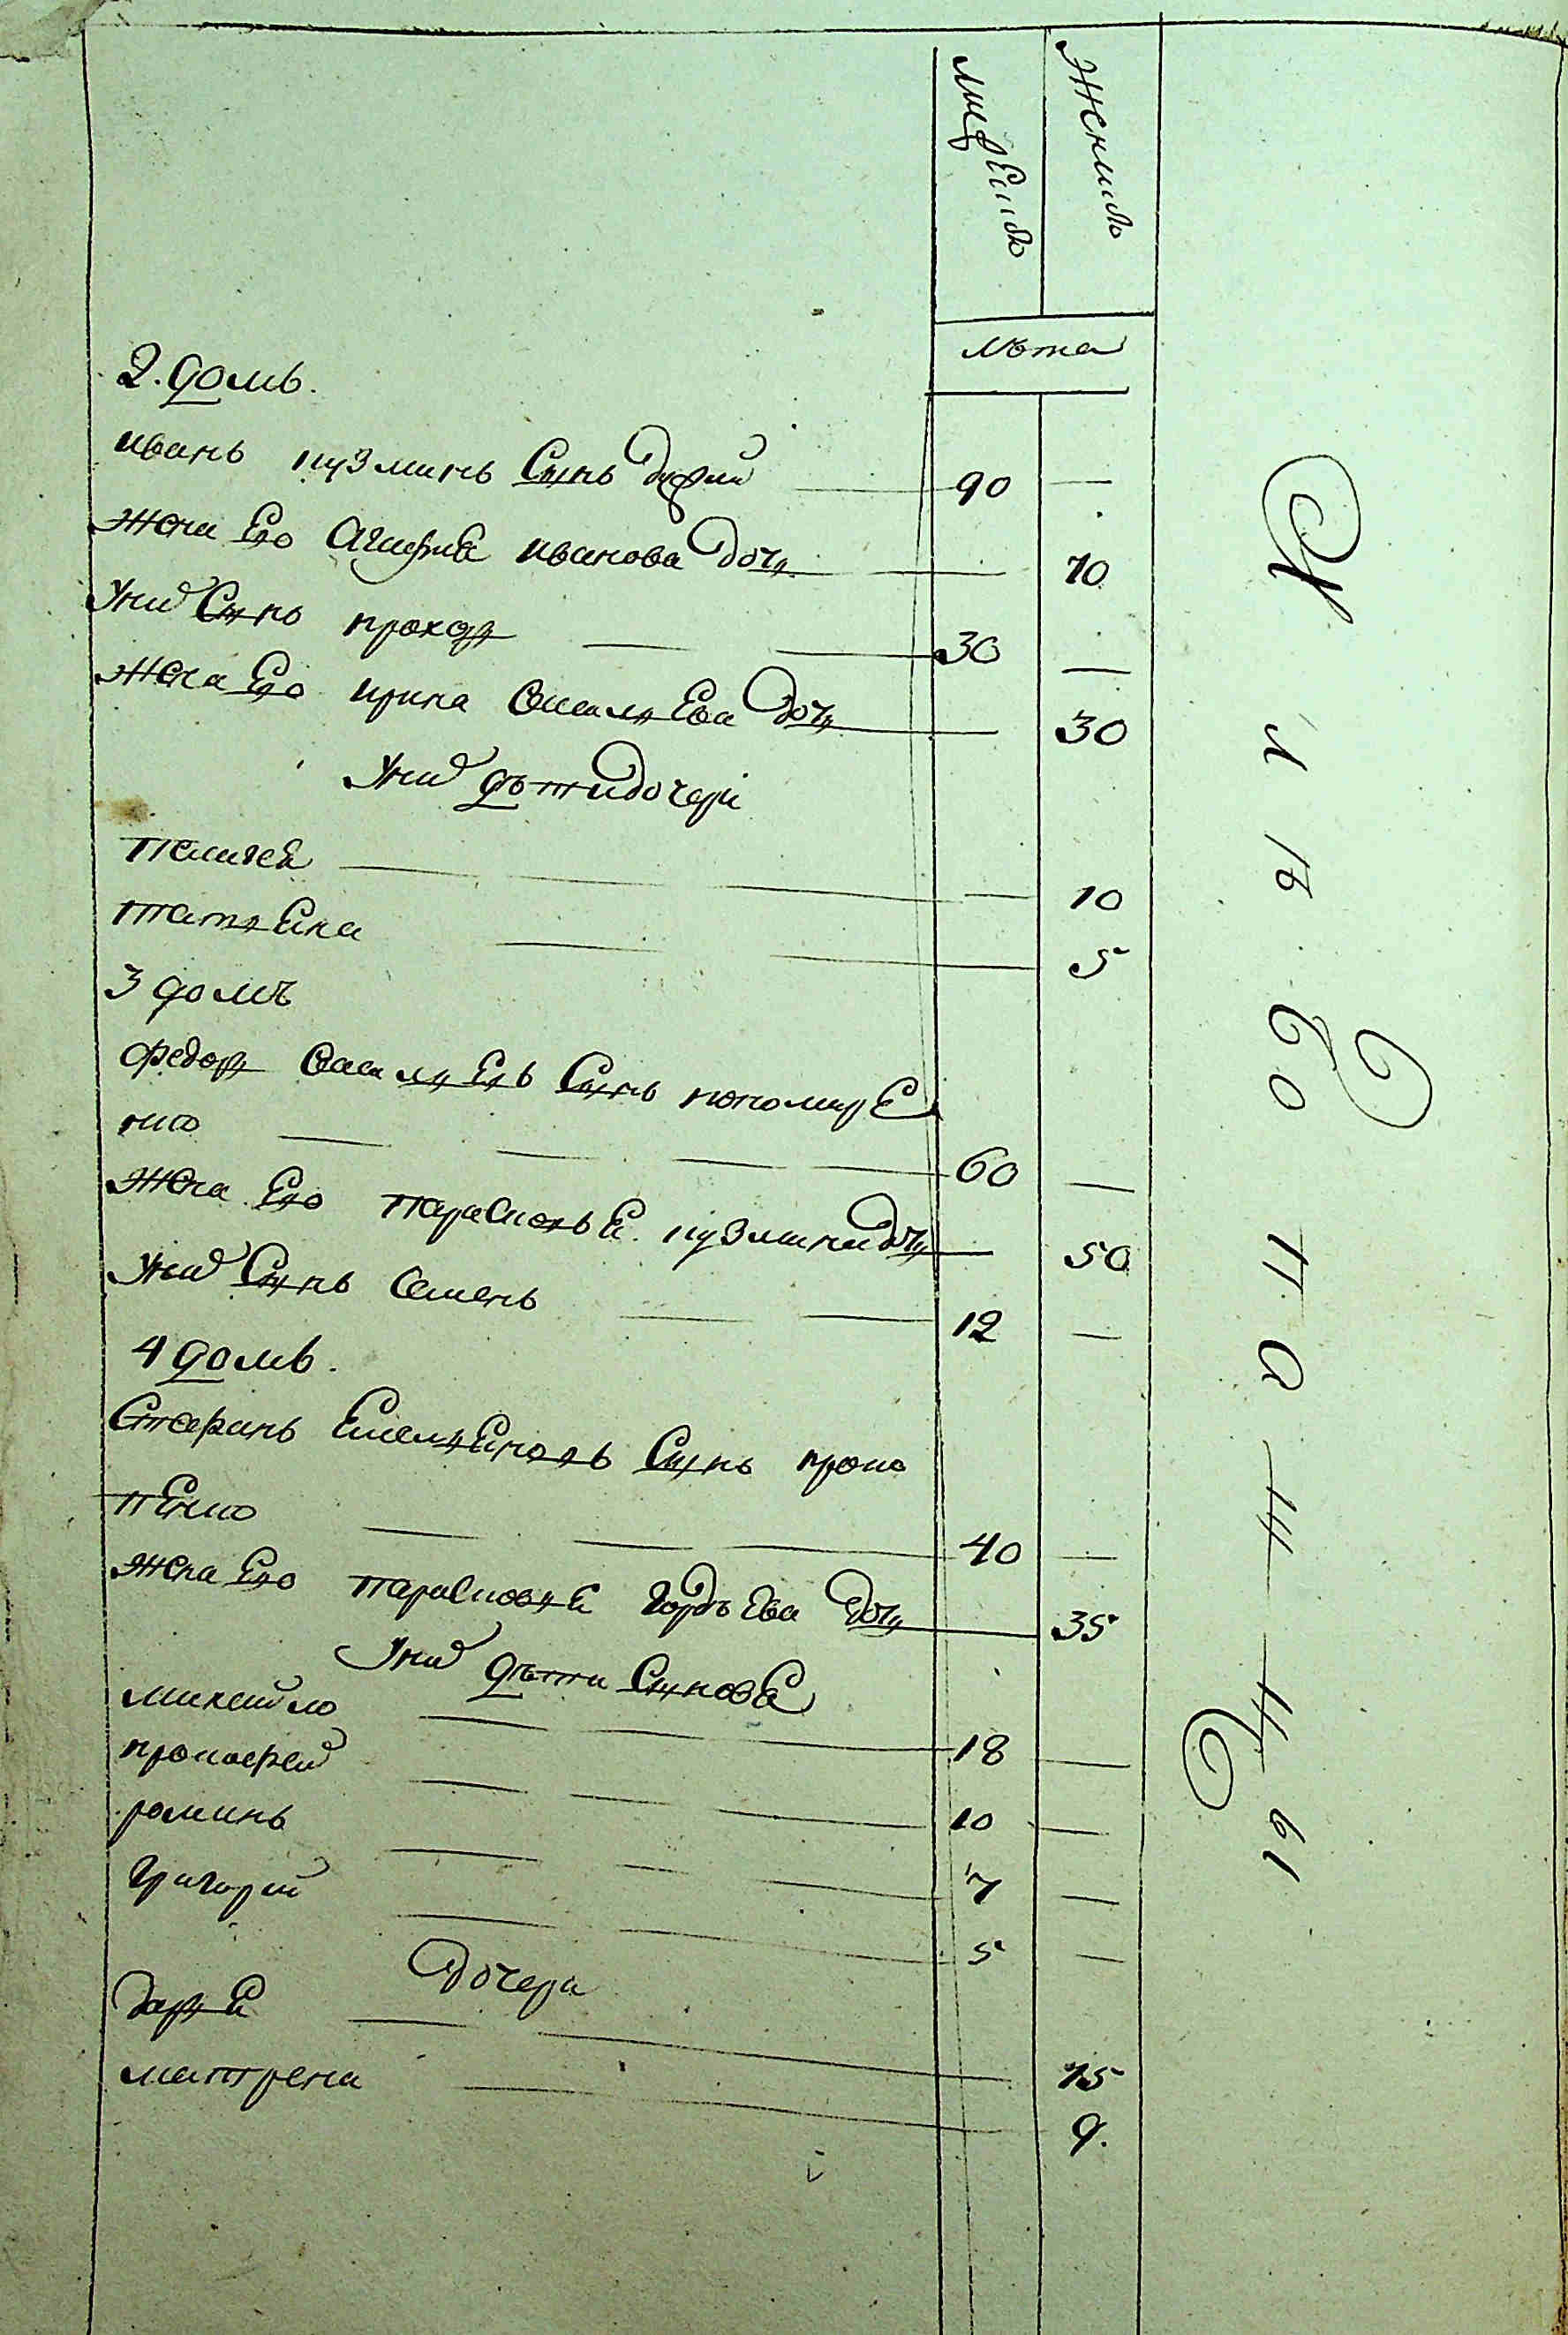 мужеска
женска
лѣта
2. домъ.
иванъ кузминъ Сынъ 90 —
жена Его Агафиа иванова дочь 70
У них Сынъ прохоръ 30 —
жена Его ирина василиЕва дочь 30
У них дѣти дочери
пелагеа 10
татиЕна 5
3 домъ
федоръ василиЕвъ Сынъ пономарЕ
нко 60 —
жена Его парасковьЕа кузмина дочь 50
У них Сынъ Семенъ 12 —
4 домъ.
Стефанъ ЕмелиЕновъ Сынъ проко
пЕнко 40 —
жена Его парасковиЕа гордѣЕва дочь 35
У них дѣти СыновЕа
михайло 18 —
прокофей 10 —
романъ 7 —
григорий 5 —
дочери
дариЕа 15
матрена 9.